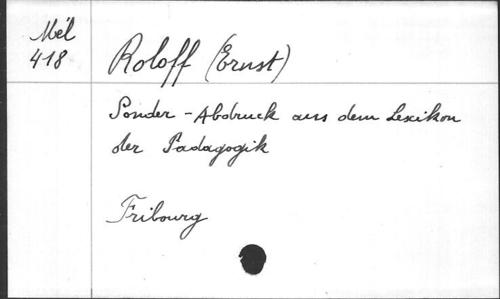 Mél
418
Roloff (Ernst)
Sonder-Abdruck aus dem Lexikon
der Padagogik
Fribourg